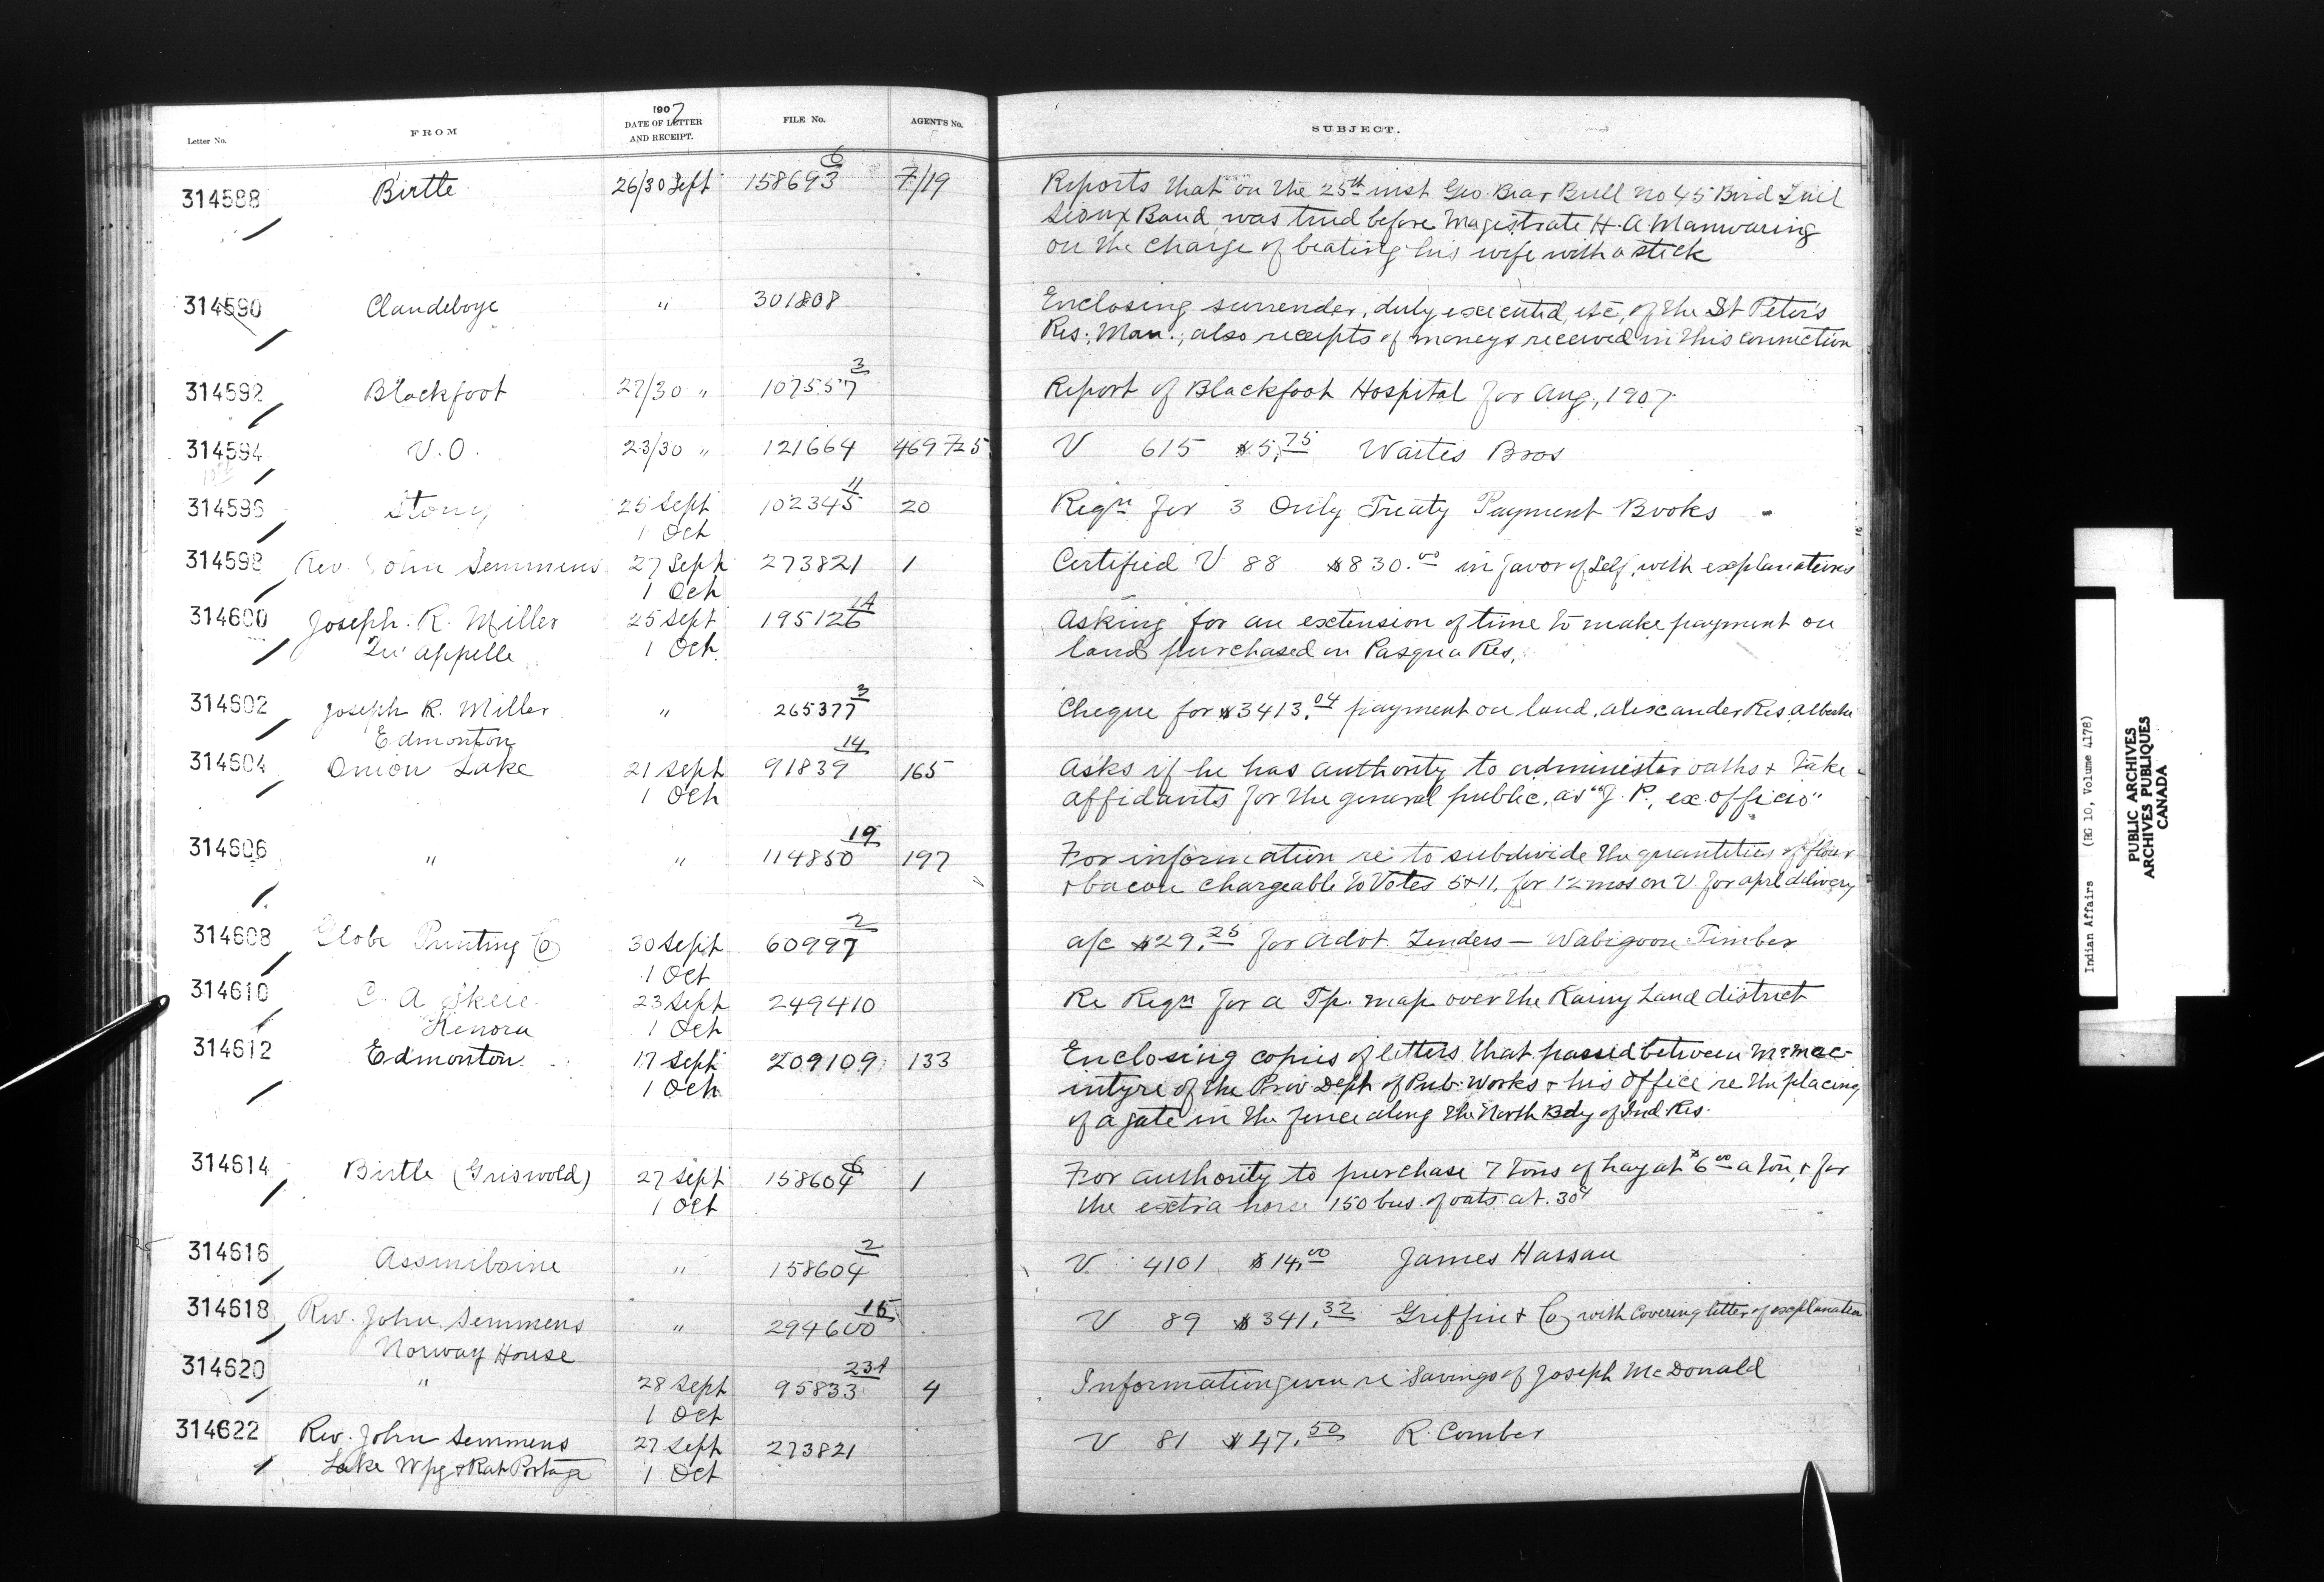 Letter No.
FROM
1907
DATE OF LETTER
AND RECEIPT.
FILE No.
AGENTS No.
SUBJECT.
314588 Birtle 26/30 Sept 158693 6 7/19 Reports that on the 25th inst Geo. Bear Bull no 45 Bird Tail
Sioux Band was tried before Magistrate H. A. Manwaring
on the charge of beating his wife with a stick
314590 Clandeboye " 301808 Enclosing surrender, duly executed, etc, of the St Peter's
Res., Man., also receipts of moneys received in this connection
314592 Blackfoot 27/30 " 107557 3 Report of Blackfoot Hospital for Aug, 1907
314594 V.O. 23/30 " 121664 469725 V 615 $5.75 Waites Bros
314596 Stony 25 Sept 102345 11 20 Reqn for 3 Only Treaty Payment Books
1 Oct
314598 Rev. John Semmens 27 Sept 273821 1 Certified V 88 $830.00 in favor of Self, with explanations
1 Oct
314600 Joseph. R. Miller 25 Sept 195126 14 Asking for an extension of time to make payment on
Qu'appelle 1 Oct land purchased in Pasqua Res,
314602 Joseph R. Miller " 265377 3 Cheque for $3413.04 payment on land, Alexander Res Alberta
Edmonton
314604 Onion Lake 21 Sept 91839 14 165 Asks if he has authority to administer oaths & take
1 Oct affidavits for the general public, as "J. P., ex officio"
314606 " " 114850 19 197 For information re to subdivide the quantities of flour
& bacon chargeable to Votes 5 & 11, for 12 mos on V for aprl delivery
314608 Globe Printing Co 30 Sept 60997 2 a/c $29.25 for Advt. Tenders — Wabigoon Timber
1 Oct
314610 C. A. Skeie 23 Sept 249410 Re Reqn for a Tp. map over the Rainy Land district
Kenora 1 Oct
314612 Edmonton 17 Sept 209109 133 Enclosing copies of letters that passed between Mr Mac-
1 Oct intyre of the Prov Dept of Pub. Works & his office re the placing
of a gate in the fence along the North Bdy of Ind Res.
314614 Birtle (Griswold) 27 Sept 158604 6 1 For authority to purchase 7 tons of hay at $6.00 a ton, & for
1 Oct the extra horse 150 bus. of oats at .30¢
314616 Assiniboine " 158604 2 V 4101 $14.00 James Hassan
314618 Rev. John Semmens " 294600 16 V 89 $341.32 Griffin & Co, with covering letter of explanation
Norway House
314620 " 28 Sept 95833 4 Information given re Savings of Joseph McDonald
1 Oct
314622 Rev. John Semmens 27 Sept 273821 V 81 $47.50 R. Comber
Lake Wpg & Rat Portage 1 Oct
Indian Affairs (RG 10, Volume 4178)
PUBLIC ARCHIVES
ARCHIVES PUBLIQUES
CANADA